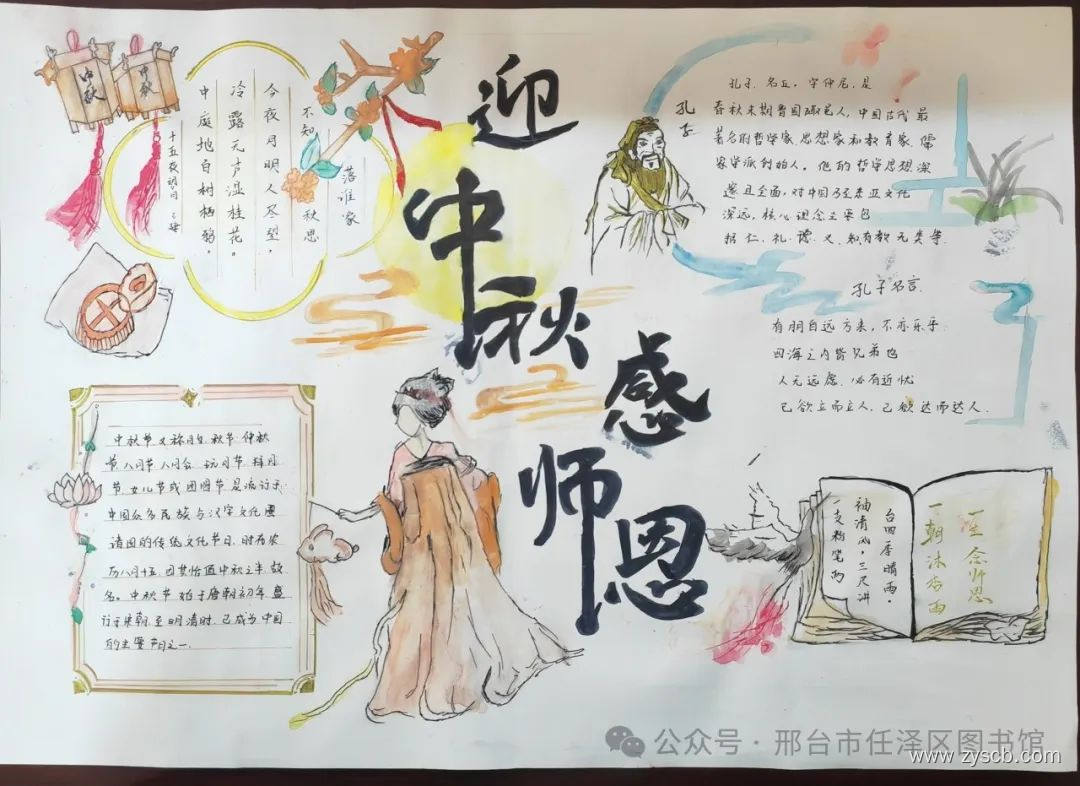 中秋
中秋
迎
中秋
感
师恩
十五夜望月 王建
中庭地白树栖鸦。
冷露无声湿桂花。
今夜月明人尽望，
不知秋思
落谁家
孔子
孔子，名丘，字仲尼，是
春秋末期鲁国陬邑人，中国古代最
著名的哲学家、思想家和教育家，儒
家学派创始人。他的哲学思想深
邃且全面，对中国乃至东亚文化
深远，核心理念主要包
括仁、礼、德、义、知、有教无类等.
孔子名言.
有朋自远方来，不亦乐乎.
四海之内皆兄弟也
人无远虑，必有近忧
己欲立而立人，己欲达而达人.
中秋节又称月夕、秋节、仲秋
节、八月节、八月会、玩月节、拜月
节、女儿节或团圆节，是流行于
中国众多民族与汉字文化圈
诸国的传统文化节日，时在农
历八月十五，因其恰值中秋之半，故
名。中秋节始于唐朝初年，盛
行于宋朝，至明清时，已成为中国
的主要节日之一.
支粉笔两
袖清风，三尺讲
台四季晴雨。
一朝沐杏雨
一生念师恩
公众号 · 邢台市任泽区图书馆
www.zyscb.com